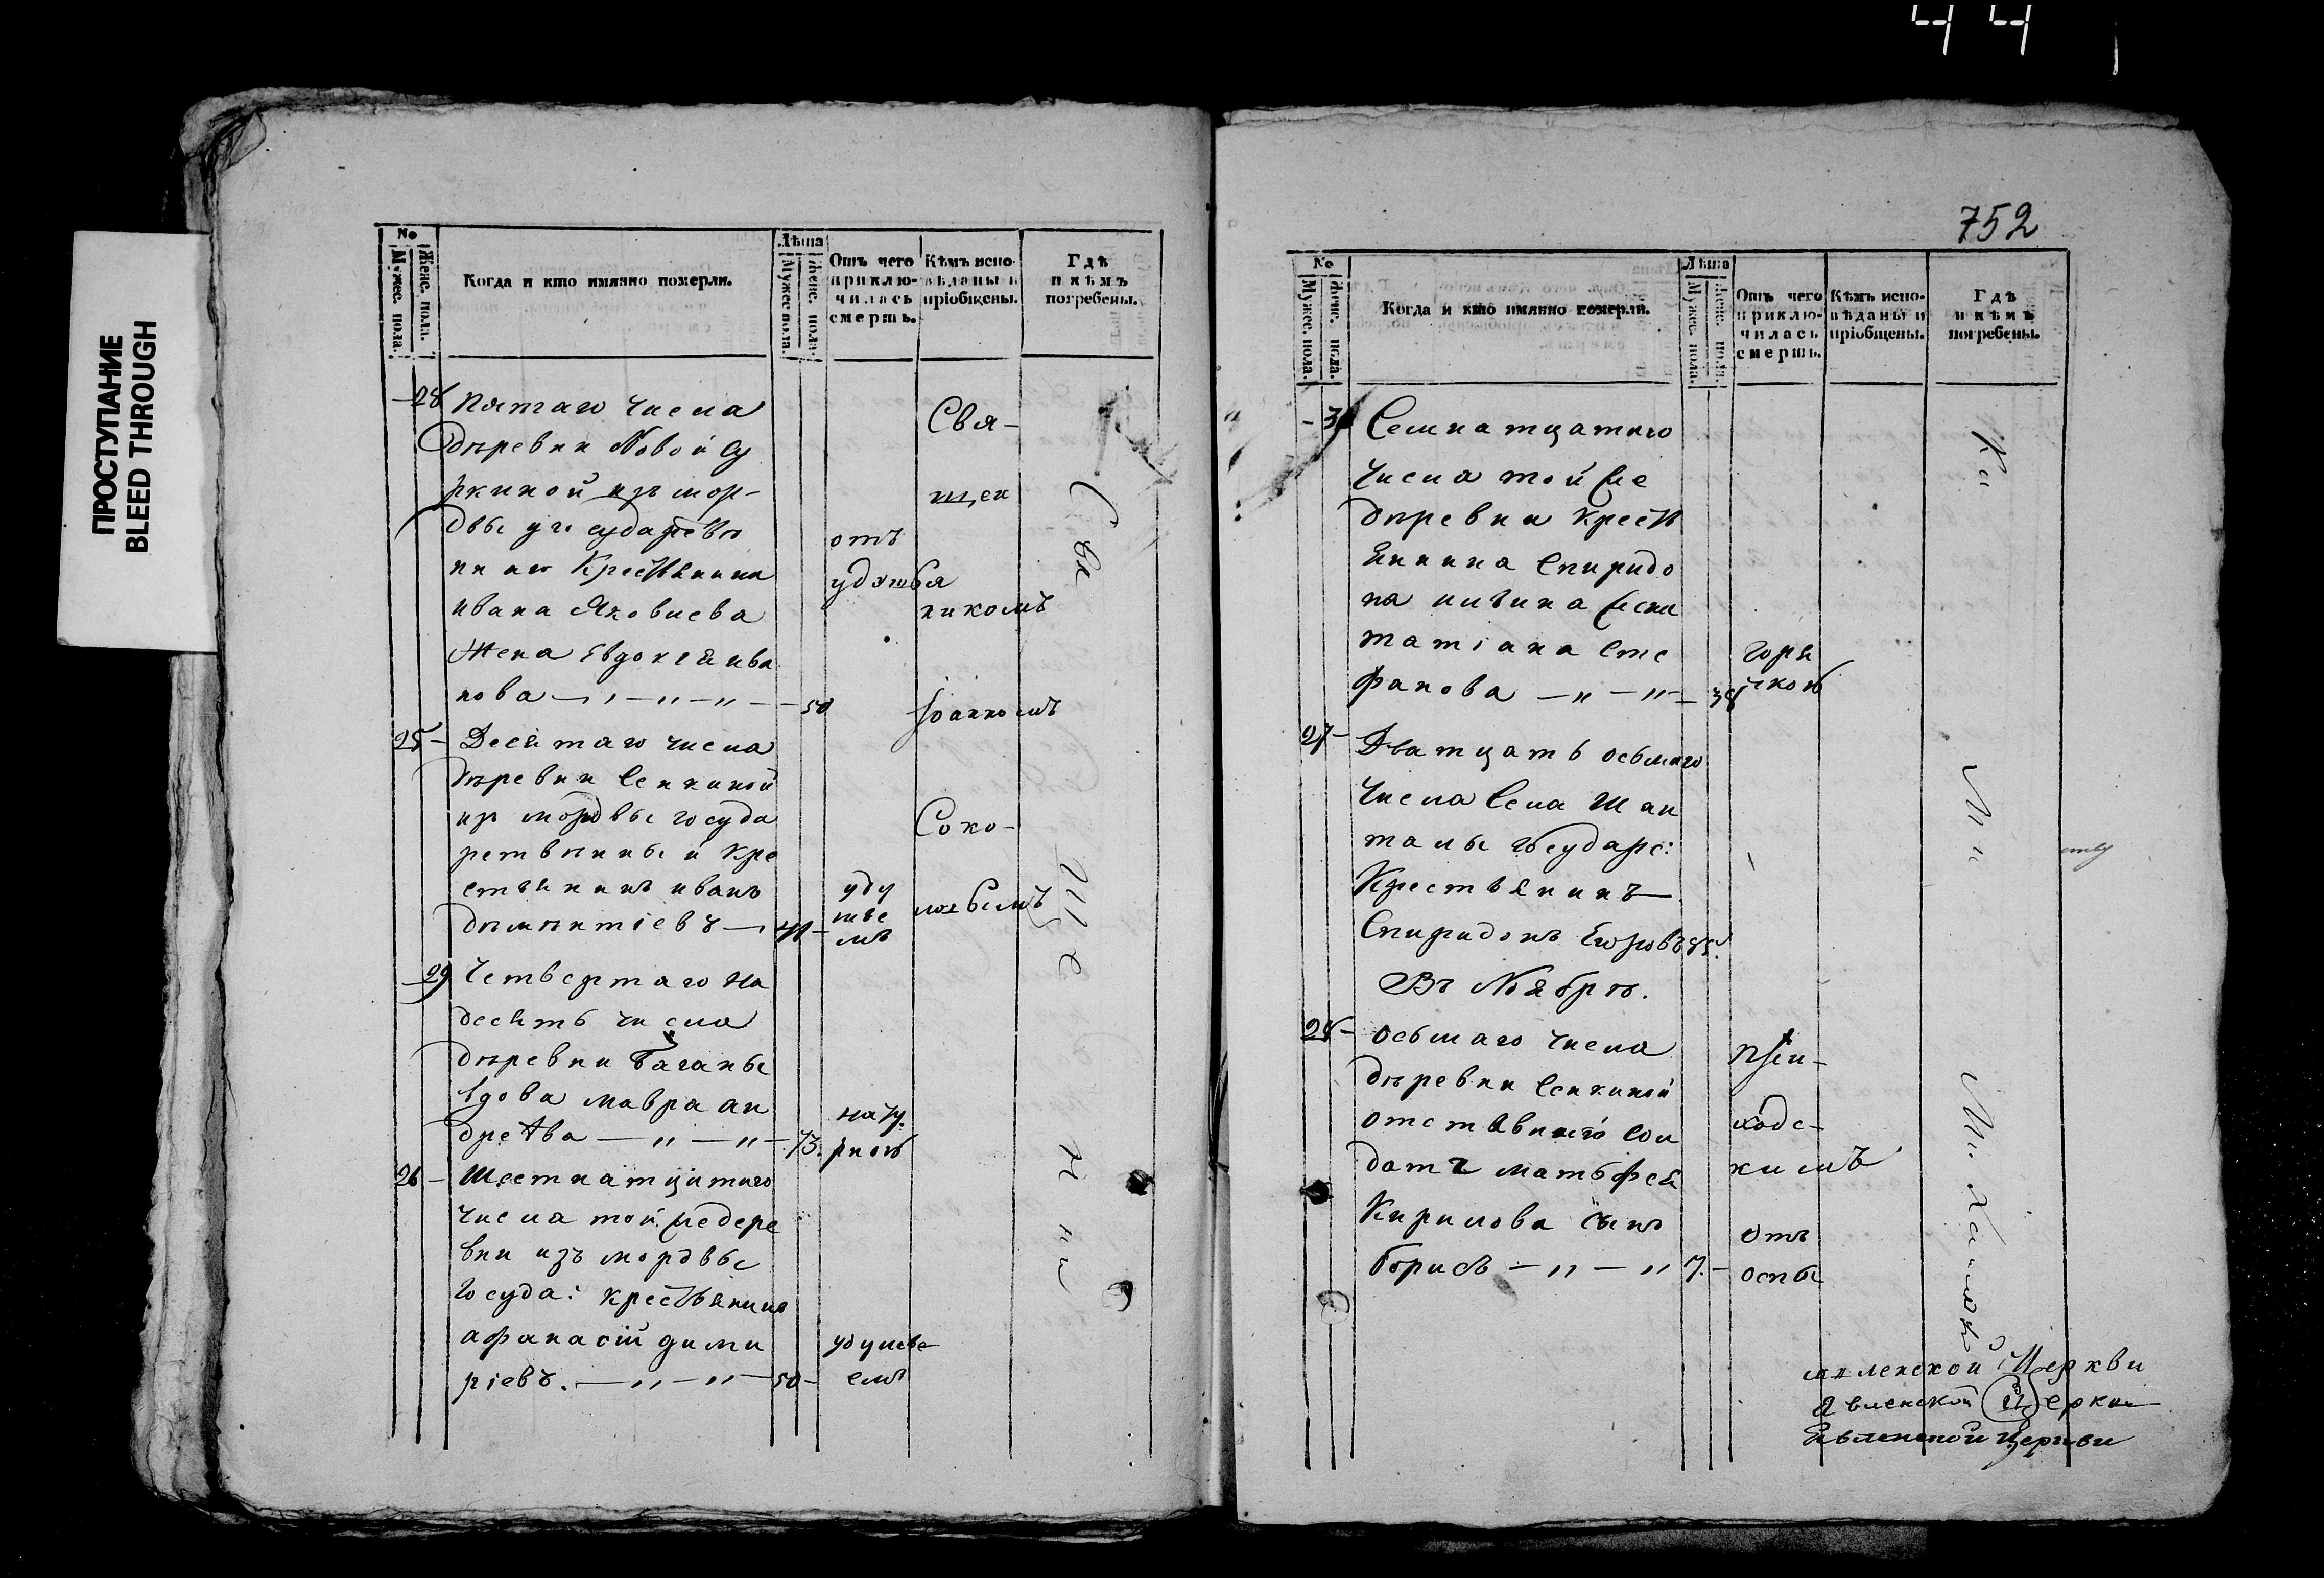 44
ПРОСТУПАНИЕ
BLEED THROUGH
№
Мужес. пола.
Женс. пола.
Когда и кто имянно померли.
Лѣта
Мужес. пола.
Женс. пола.
Отъ чего приключилась смерть.
Кѣмъ исповѣданы и пріобщены.
Гдѣ и кѣмъ погребены.
28 пятаго числа
дѣревни Новой Су
ркиной изъ мор-
двы
крестьянина
ивана Яковлева
жена Евдокея ива
нова — 50
отъ
удушья
25 Десятаго числа
дѣревни Сенкиной
из мордвы госуда
рствѣнны й кре
стьянинъ иванъ
дѣмѣнтіевъ — 41
уду
шье
мъ
29 Четвертаго на
десять числа
дѣревни Баганы
вдова мавра ан
дреева — 73.
нату.
рною
26 Шестнатцатаго
числа той же дере
вни изъ мордвы
Госуда: крестьянинъ
афанасій дими
ріевъ. — 50
удушье
емъ
Свя-
щен
никомъ
Іоанномъ
Соко-
ловымъ
Свя
ще
нни
752
№
Мужес. пола.
Женс. пола.
Когда и кто имянно померли.
Лѣта
Мужес. пола.
Женс. пола.
Отъ чего приключилась смерть.
Кѣмъ исповѣданы и пріобщены.
Гдѣ и кѣмъ погребены.
Семнатцатаго
числа той же
дѣревни крест
янина Спиридо
на жена
татіана Сте
фанова — 38
горя
чкою
27 Дватцать осьмаго
числа Села Шан
талы Государс:
Крестьянинъ
Спиридонъ Егоровъ 85.
Въ Ноябрѣ.
28 осьмаго числа
дѣревни Сенкиной
отставнаго сол
датъ матьфея
Кирилова сынъ
борисъ — 7.
При-
ходс-
кимъ
отъ
оспы
Ко
Михаиломъ
Явленской Церкви
Явленской Церкви